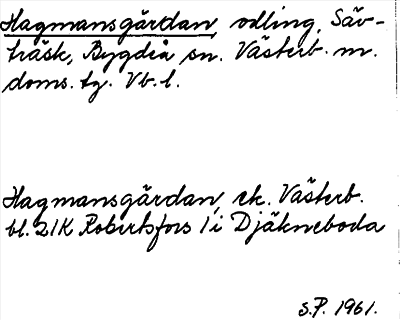 Hagmansgärdan, odling, Säv-
träsk, Bygdeå sn. Västerb. m.
doms. tg. Vb. l.
Hagmansgärdan, ek. Västerb.
bl. 21K Robertsfors 1 i Djäkneboda
S.P. 1961.